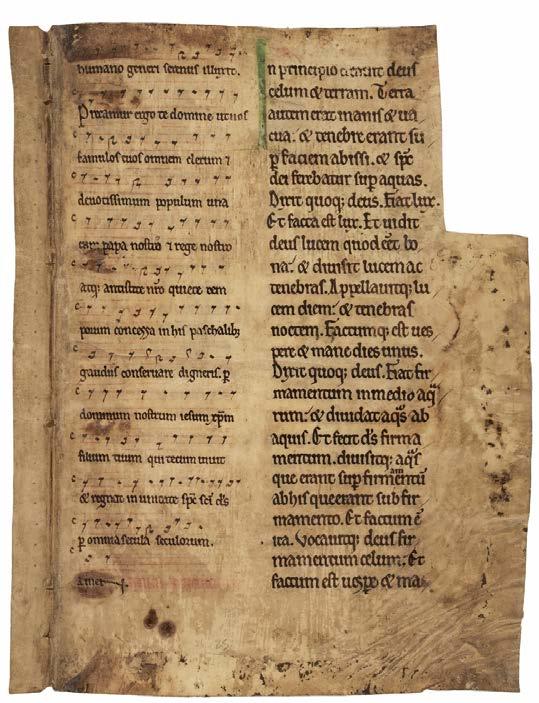 humano generi serenus illuxit.
Precamur ergo te domine ut nos
famulos tuos omnem clerum ⁊
deuotissimum populum una
cum papa nostro ⁊ rege nostro
atq; antistite nr̄o quiete tem
porum concessa in his paschalib;
gaudiis conseruare digneris. ꝑ
dominum nostrum iesum xp̄m
filium tuum qui tecum uiuit
& regnat in unitate sp̄c sc̄i ds̄
ꝑ omnia secula seculorum.
Amen
n principio creauit deus
celum & terram. Terra
autem erat inanis & ua
cua. & tenebre erant su
ꝑ faciem abissi. & sp̄c
dei ferebatur suꝑ aquas.
Dixit quoq; deus. Fiat lux.
Et facta est lux. Et uidit
deus lucem quod cēt bo
na. & diuisit lucem ac
tenebras. Appellauitq; lu
cem diem. & tenebras
noctem. Factumq; est ues
pere & mane dies unus.
Dixit quoq; deus. Fiat fir
mamentum in medio aq̄
rum. & diuidat aq̄s ab
aquis. Et fecit ds̄ firma
mentum. diuisitq; aq̄s
que erant suꝑ firmamentū
ab his que erant sub fir
mamento. Et factum ē
ita. Vocauitq; deus fir
mamentum celum. Et
factum est uesꝑe & ma